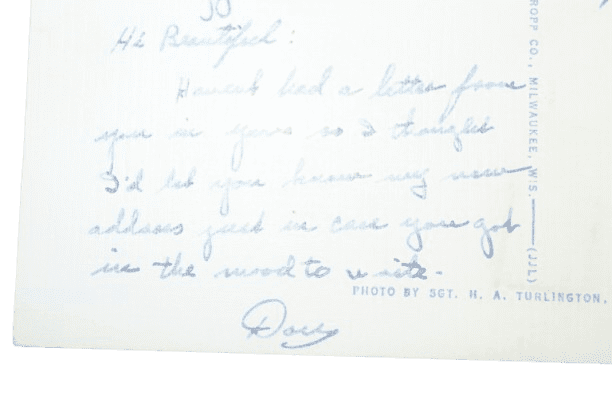 Hi Beautiful:
Havent had a letter from
you in years so I thought
I'd let you know my new
address just in case you got
in the mood to write.
ROPP CO., MILWAUKEE, WIS.
(JJL)
PHOTO BY SGT. H. A. TURLINGTON,